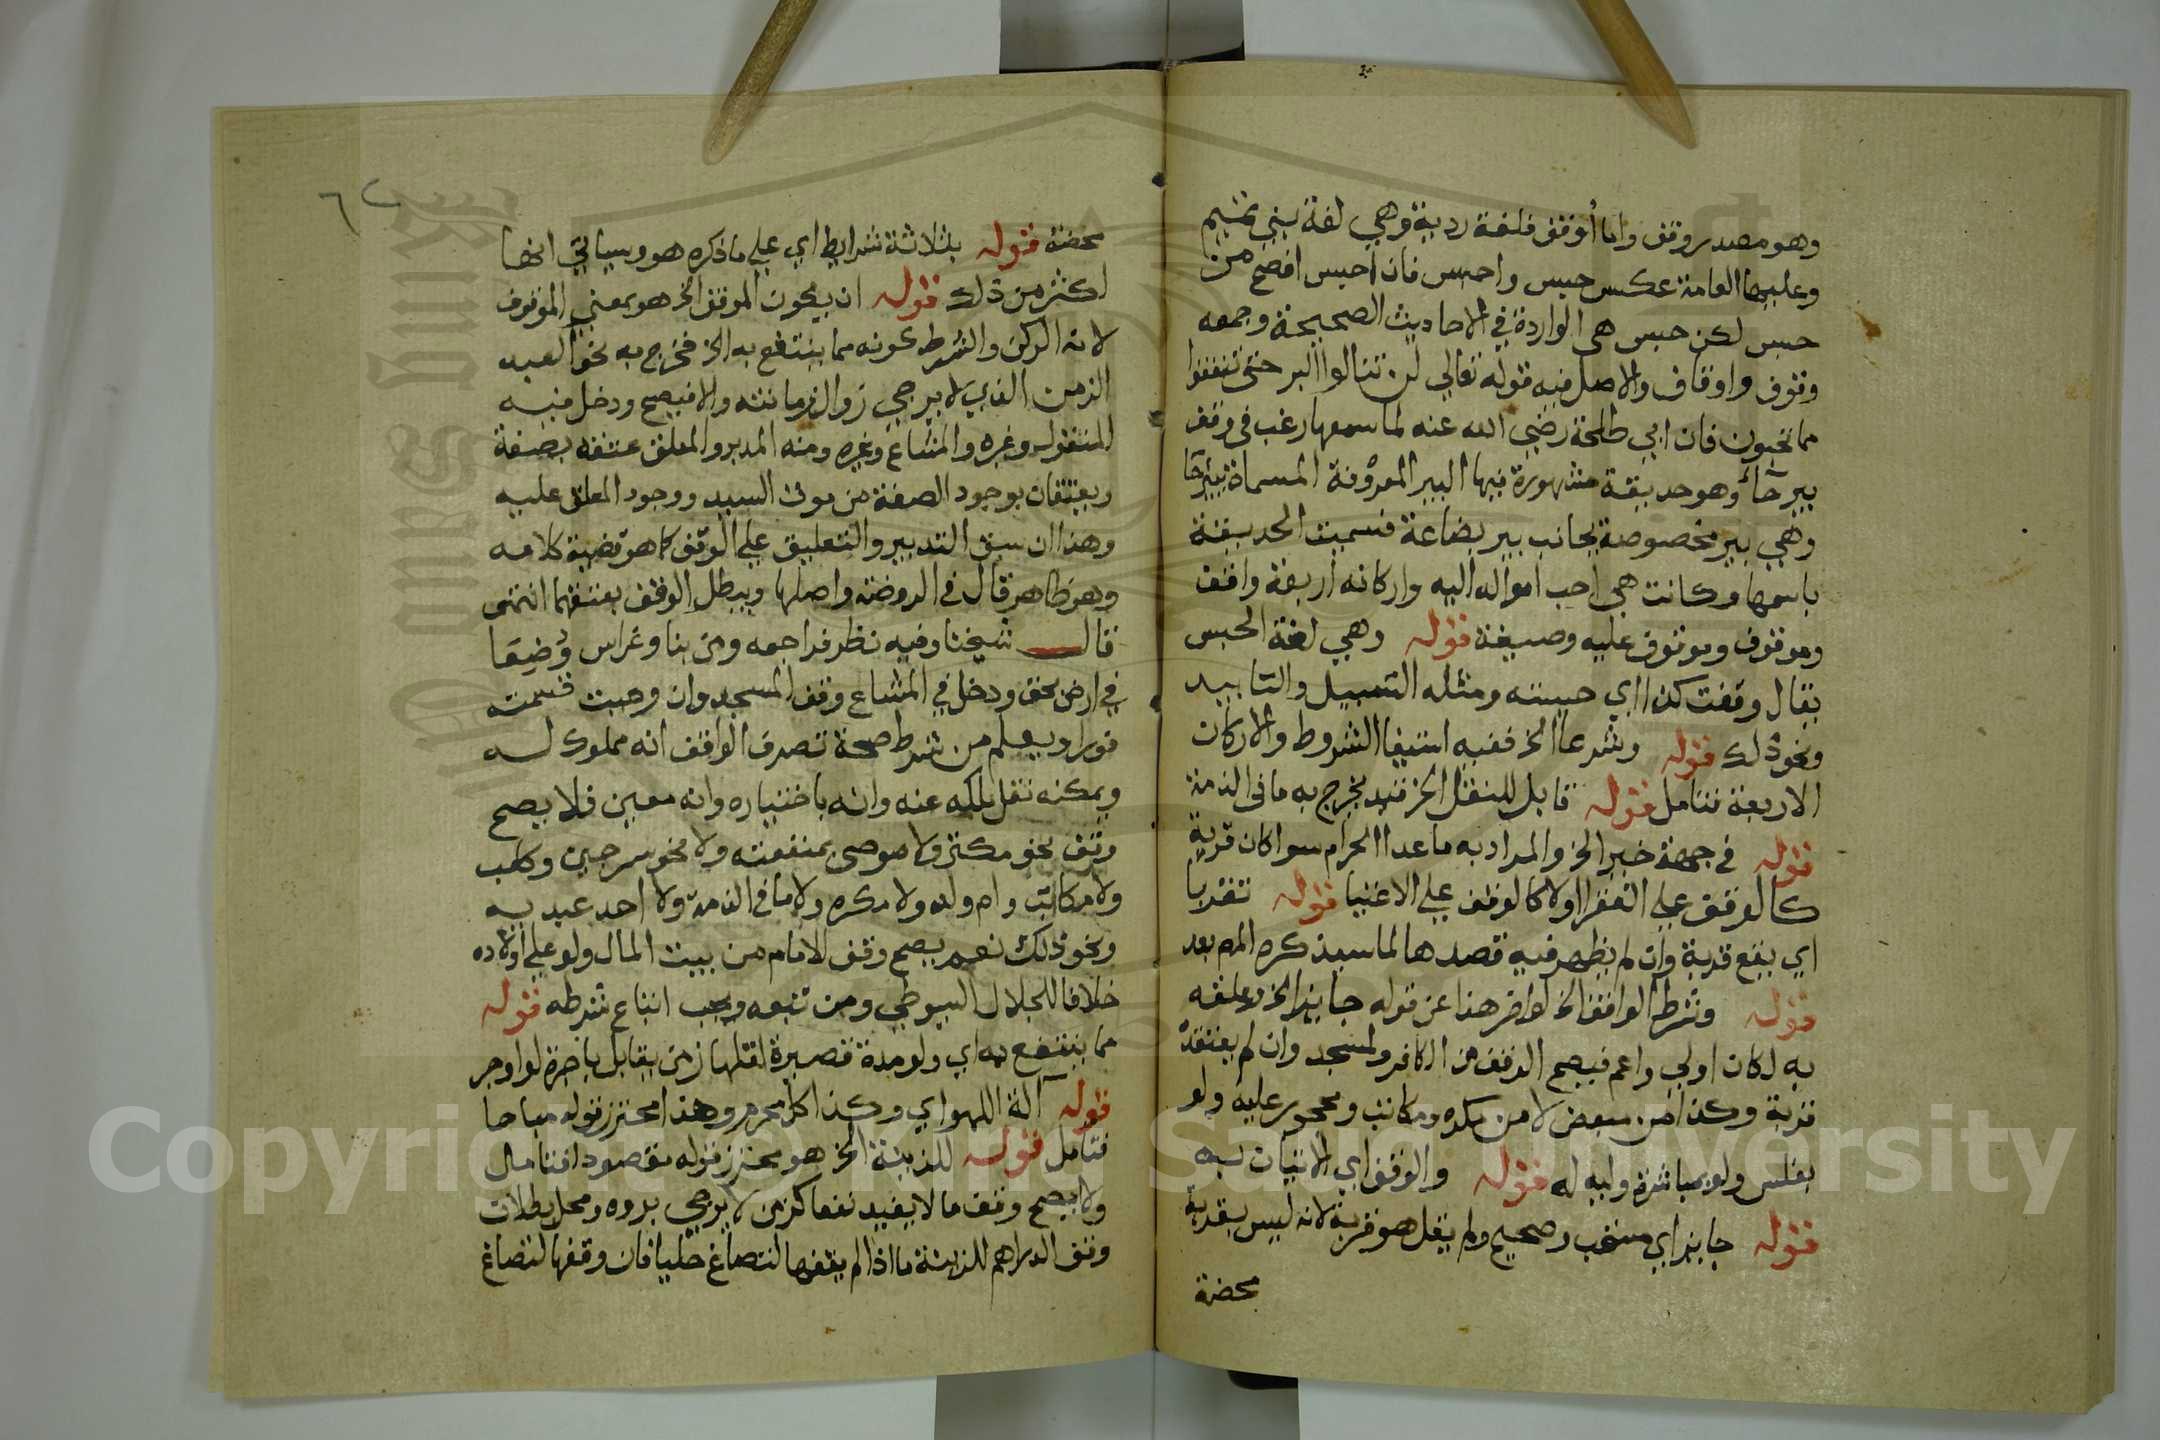 وهو مصدر وقف واما أوقف فلغة ردية وهي لغة بني تميم
وعليها العامة عكس حبس واحبس فان احبس افصح من
حبس لكن حبس هي الواردة في الاحاديث الصحيحة وجمعه
وقوف واوقاف والاصل فيه قوله تعالي لن تنالوا البر حتى تنفقوا
مما تحبون فان ابي طلحة رضي الله عنه لما سمعها رغب في وقف
بيرحاء وهو حديقة مشهورة فيها البير المعروفة المسماة ببيرحا
وهي بير مخصوصة بجانب بير بضاعة فسميت الحديقة
باسمها وكانت هي احب امواله اليه واركانه اربعة واقف
وموقوف وموقوف عليه وصيغة قوله وهي لغة الحبس
يقال وقفت كذا اي حبسته ومثله التسبيل والتابيد
ونحو ذلك قوله وشرعا الخ ففيه استيفا الشروط والاركان
الاربعة فتامل قوله قابل للنقل الخ قيد يخرج به ما في الذمة
قوله في جهة خير الخ والمراد به ما عدا الحرام سوا كان قربة
كالوقف علي الفقرا اولا كالوقف علي الاغنيا قوله تقربا
اي يقع قربة وان لم يظهر فيه قصدها لما سيذكره المص بعد
قوله وشرط الواقف الخ لو اخر هذا عن قوله جايز الخ وعلقه
به لكان اولي واعم فيصح الوقف من الكافر ولمسجد وان لم يعتقده
قربة وكذا من مبعض لا من مكره ومكاتب ومحجور عليه ولو
بفلس ولو بمباشرة وليه له قوله والوقف اي الاتيان به
قوله جايز اي مستحب وصحيح ولم يقل هو قربة لانه ليس بقربة
محضة
٦٢
محضة قوله بثلاثة شرايط اي علي ما ذكره هو وسياتي انها
اكثر من ذلك قوله ان يكون الموقف الخ هو بمعني الموقوف
لانه الركن والشرط كونه مما ينتفع به الخ فخرج به نحو العبد
الزمن الذي لا يرجي زوال زمانته والا فيصح ودخل فيه
المنقول وغيره والمشاع وغيره ومنه المدبر والمعلق عتقه بصفة
ويعتقان بوجود الصفة من موت السيد ووجود المعلق عليه
وهذا ان سبق التدبير والتعليق علي الوقف كما هو قضية كلامه
وهو ظاهر قال في الروضة واصلها ويبطل الوقف بعتقهما انتهى
قال شيخنا وفيه نظر فراجعه ومن بنا وغراس وُضِعَا
في ارض بحق ودخل في المشاع وقف المسجد وان وجبت قسمته
فورا ويعلم من شرط صحة تصرف الواقف انه مملوك له
ويمكنه نقل ملكه عنه وانه باختياره وانه معين فلا يصح
وقف نحو مكتر ولا موصى بمنفعته ولا نحو سرجين وكلب
ولا مكاتب وام ولد ولا مكره ولا ما في الذمة ولا احد عبديه
ونحو ذلك نعم يصح وقف الامام من بيت المال ولو علي اولاده
خلافا للجلال السيوطي ومن تبعه ويجب اتباع شرطه قوله
مما ينتفع به اي ولو مدة قصيرة اقلها زمن يقابل باجرة لو اوجر
قوله آلة اللهو اي وكذا كل محرم وهذا محترز قوله مباحا
فتامل قوله للزينة الخ هو محترز قوله مقصود افتامل
ولا يصح وقف ما لا يفيد نفعا كزمن لا يرجي بروه ومحل بطلان
وقف الدراهم للزينة ما اذا لم يقفها لتصاغ حليا فان وقفها لتصاغ
Copyright © King Saud University
King Saud